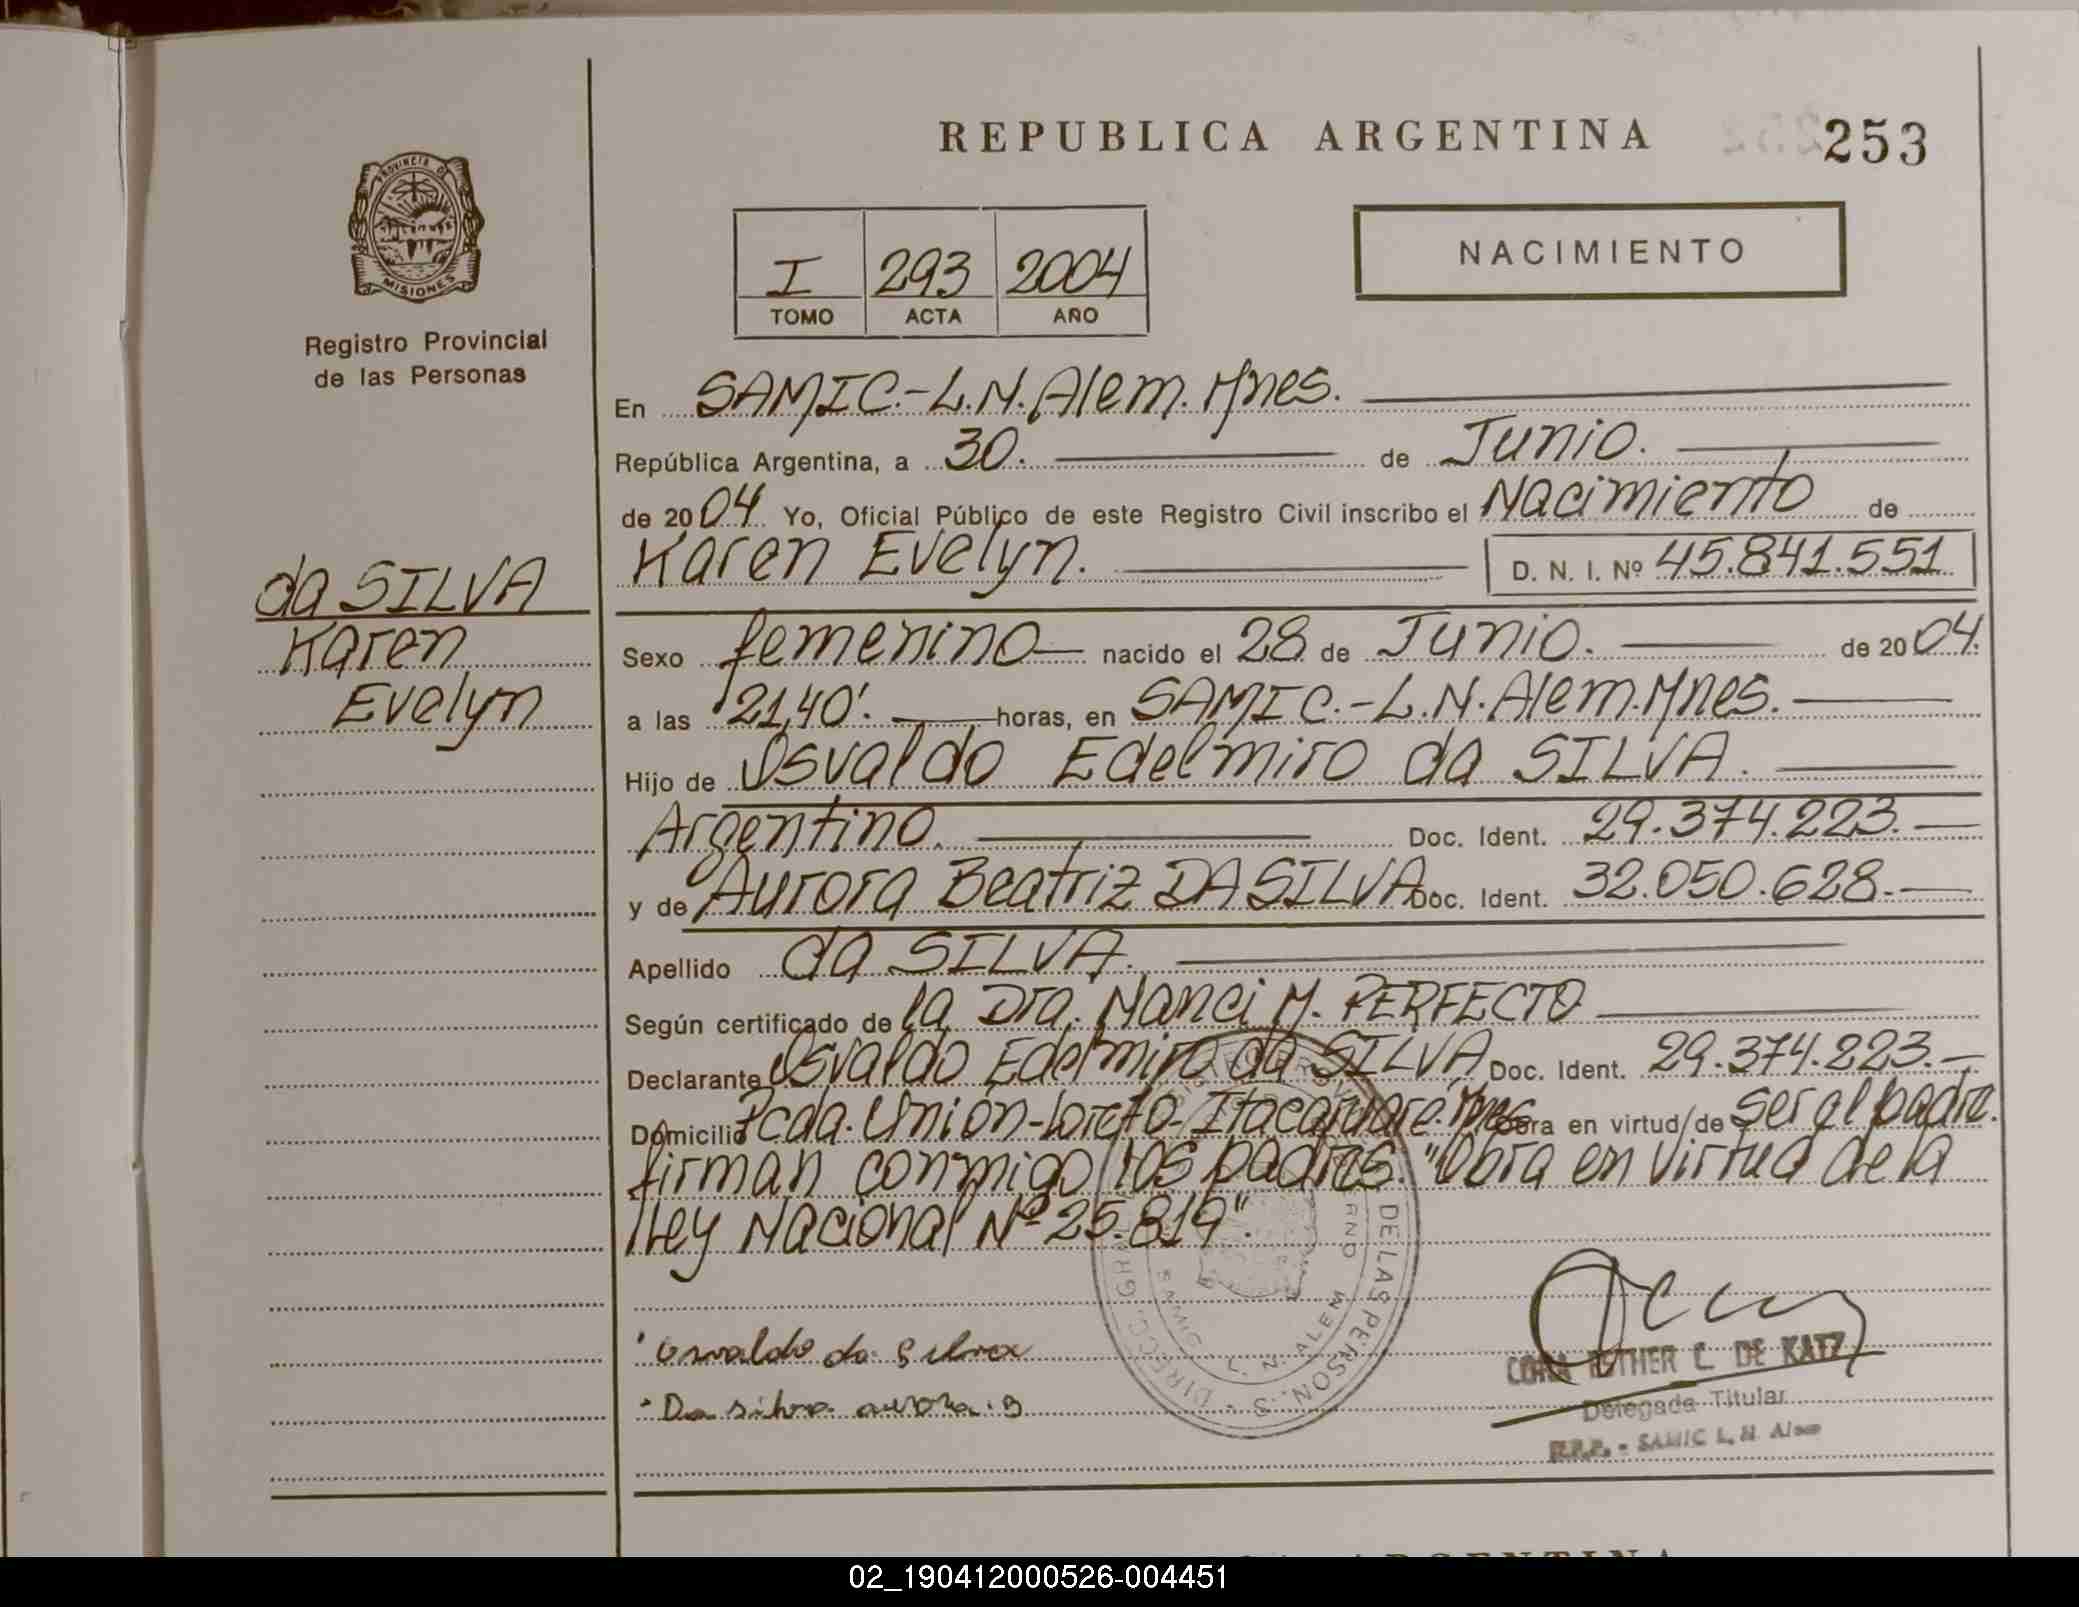 REPUBLICA ARGENTINA 253
PROVINCIA DE
MISIONES
Registro Provincial
de las Personas
I 293 2004
TOMO ACTA AÑO
NACIMIENTO
En SAMIC.-L.N.Alem.Mnes.
República Argentina, a 30. de Junio.
de 2004 Yo, Oficial Público de este Registro Civil inscribo el Nacimiento de
Karen Evelyn. D. N. I. Nº 45.841.551
da SILVA
Karen
Evelyn
Sexo femenino nacido el 28 de Junio. de 2004.
a las 21,40'. horas, en SAMIC.-L.N.Alem.Mnes.
Hijo de Osvaldo Edelmiro da SILVA.
Argentino. Doc. Ident. 29.374.223.
y de Aurora Beatriz DA SILVA Doc. Ident. 32.050.628.
Apellido da SILVA.
Según certificado de la Dra. Nanci M. PERFECTO
Declarante Osvaldo Edelmiro da SILVA Doc. Ident. 29.374.223.
Domicilio Pcda. Unión-Loreto-Itacaruaré.Mnes Obra en virtud de ser el padre.
firman conmigo los padres. "Obra en virtud de la
Ley Nacional Nº 25.819".
DE LAS PERSON S
SAMIC L. N. ALEM
Osvaldo da Silva
Da silva aurora.B
CORA ESTHER C. DE KATZ
Delegada Titular
R.P.P. - SAMIC L. N. Alem
ARGENTINA
02_190412000526-004451